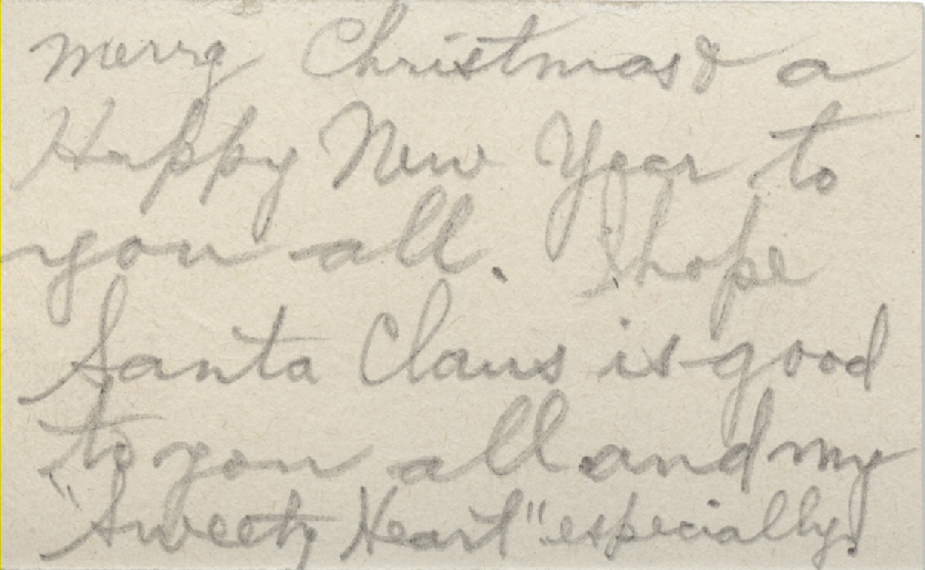 merry Christmas & a
Happy New Year to
you all. I hope
Santa Claus is good
to you all and my
"Sweety Heart" especially.